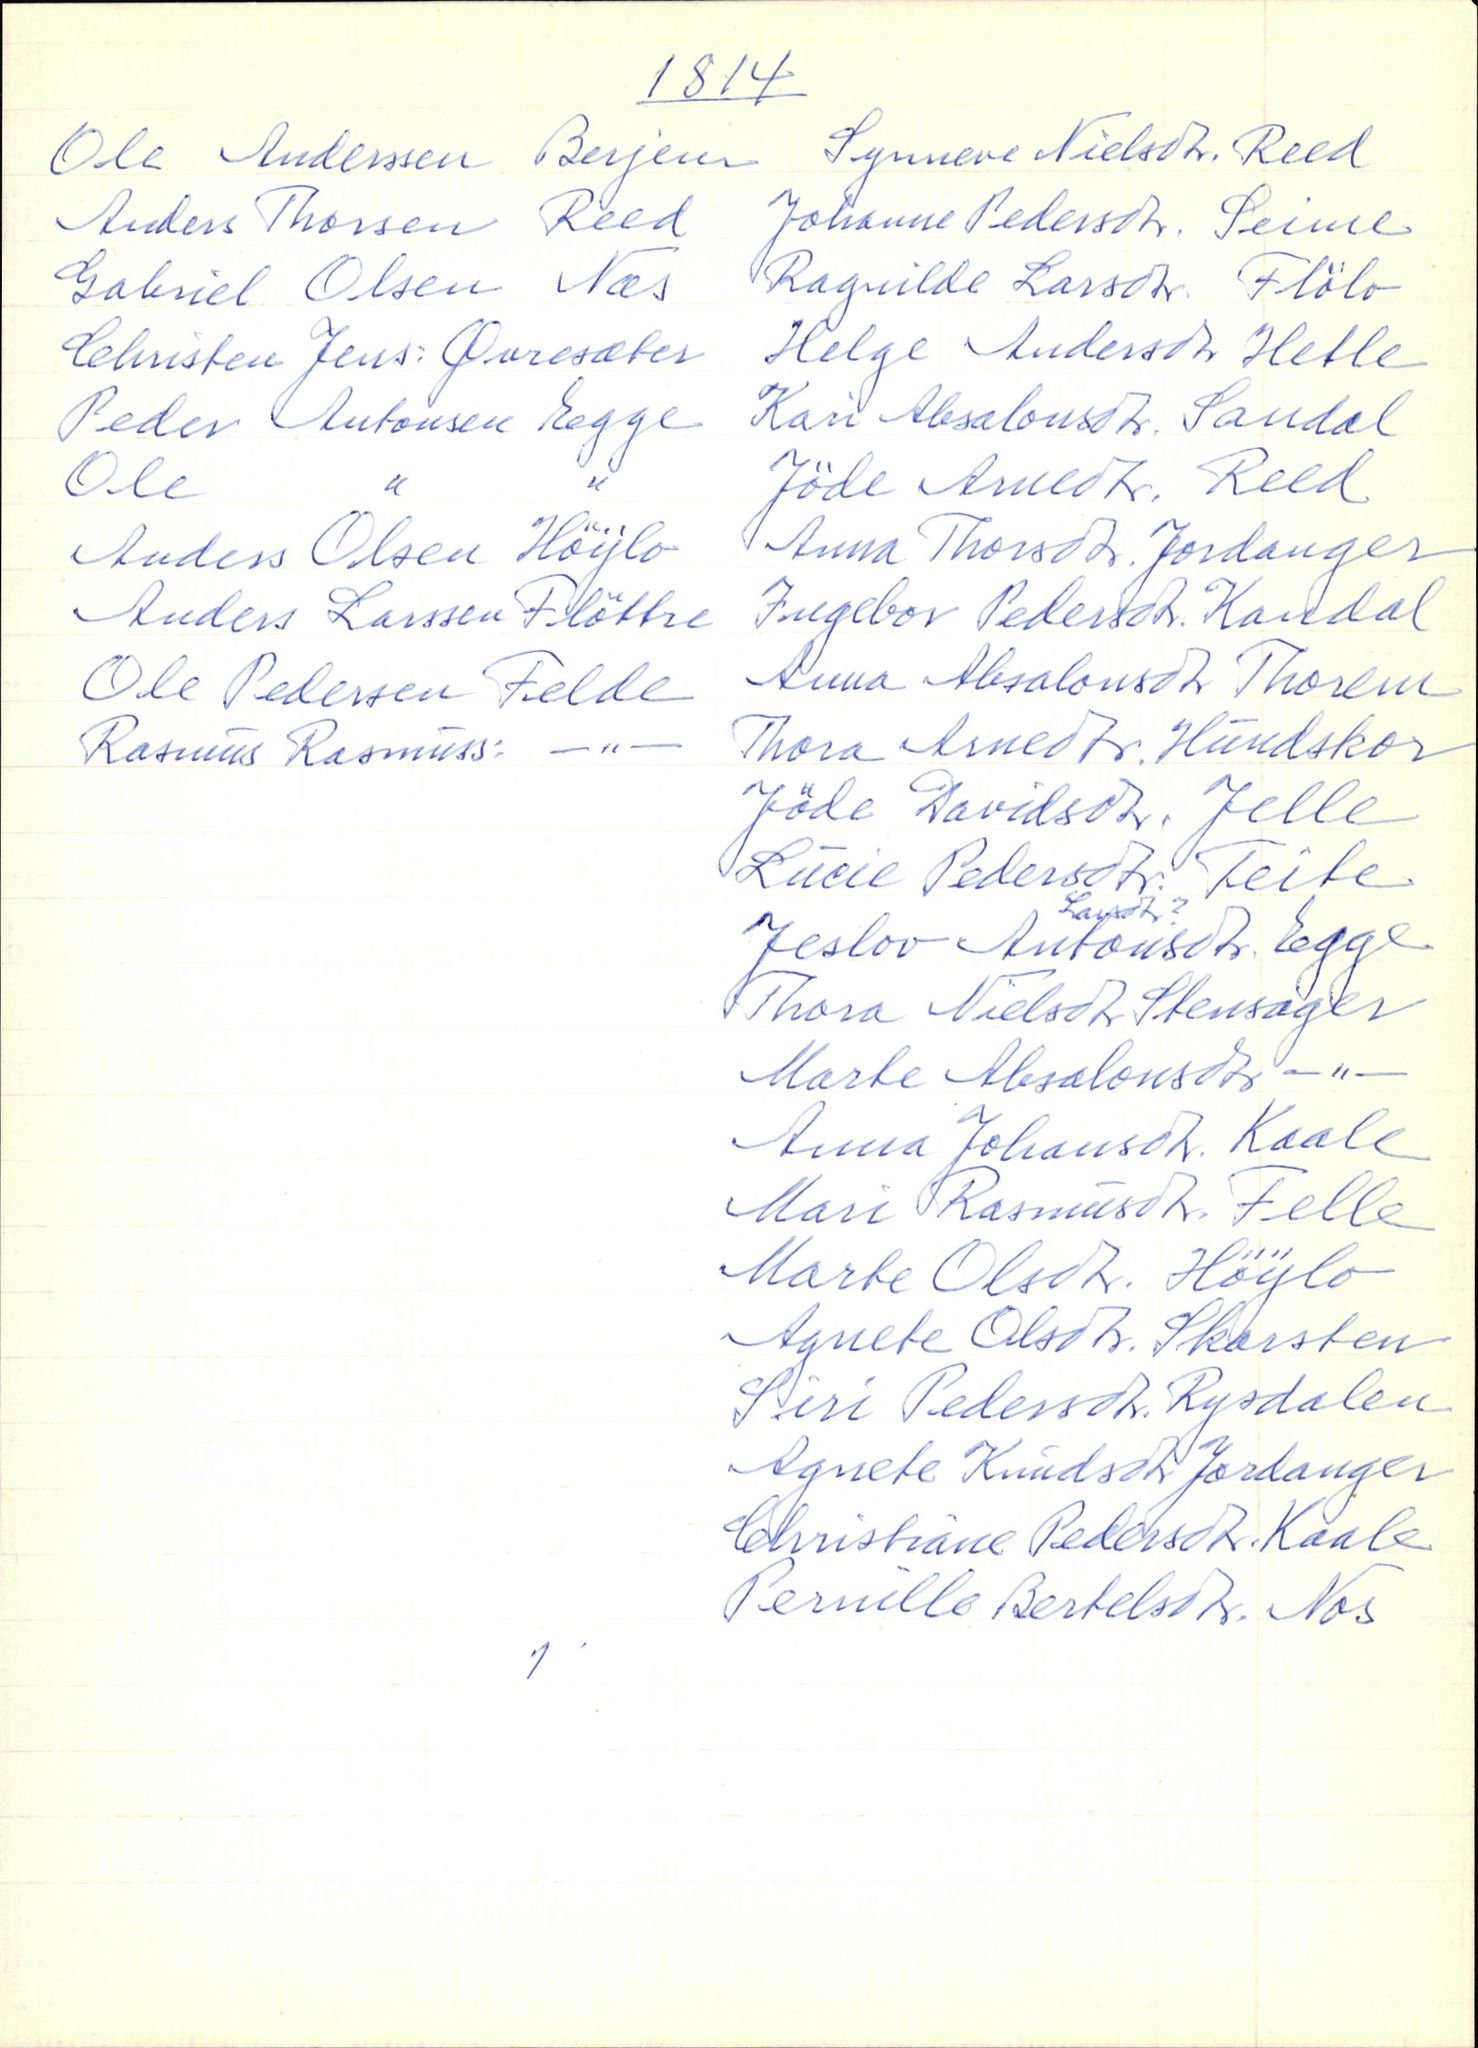 1814
Ole Anderssen Berjem
Anders Thorsen Reed
Gabriel Olsen Næs
Christen Jens: Øvresæter
Peder Antonsen Egge
Ole " "
Anders Olsen Höÿlo
Anders Larssen Flöttre
Ole Pedersen Felde
Rasmus Rasmuss: —"—
Synneve Nielsdtr. Reed
Johanne Pedersdtr. Seime
Ragnilde Larsdtr. Flölo
Helge Andersdtr Hetle
Kari Absalonsdtr. Sandal
Jöde Arnedtr. Reed
Anna Thorsdtr. Jordanger
Ingebor Pedersdtr. Kandal
Anna Absalonsdtr Thorem
Thora Arnedtr. Hundskor
Jöde Davidsdtr. Jelle
Lucie Pedersdtr. Teite
Larsdtr?
Jeslov Antonsdtr. Egge
Thora Nielsdtr Stensager
Marte Absalonsdtr —"—
Anna Johansdtr. Kaale
Mari Rasmusdtr. Felle
Marte Olsdtr. Höÿlo
Agnete Olsdtr. Skarsten
Siri Pedersdtr. Rysdalen
Agnete Knudsdtr Jordanger
Christiane Pedersdtr. Kaale
Pernille Bertelsdtr. Nos